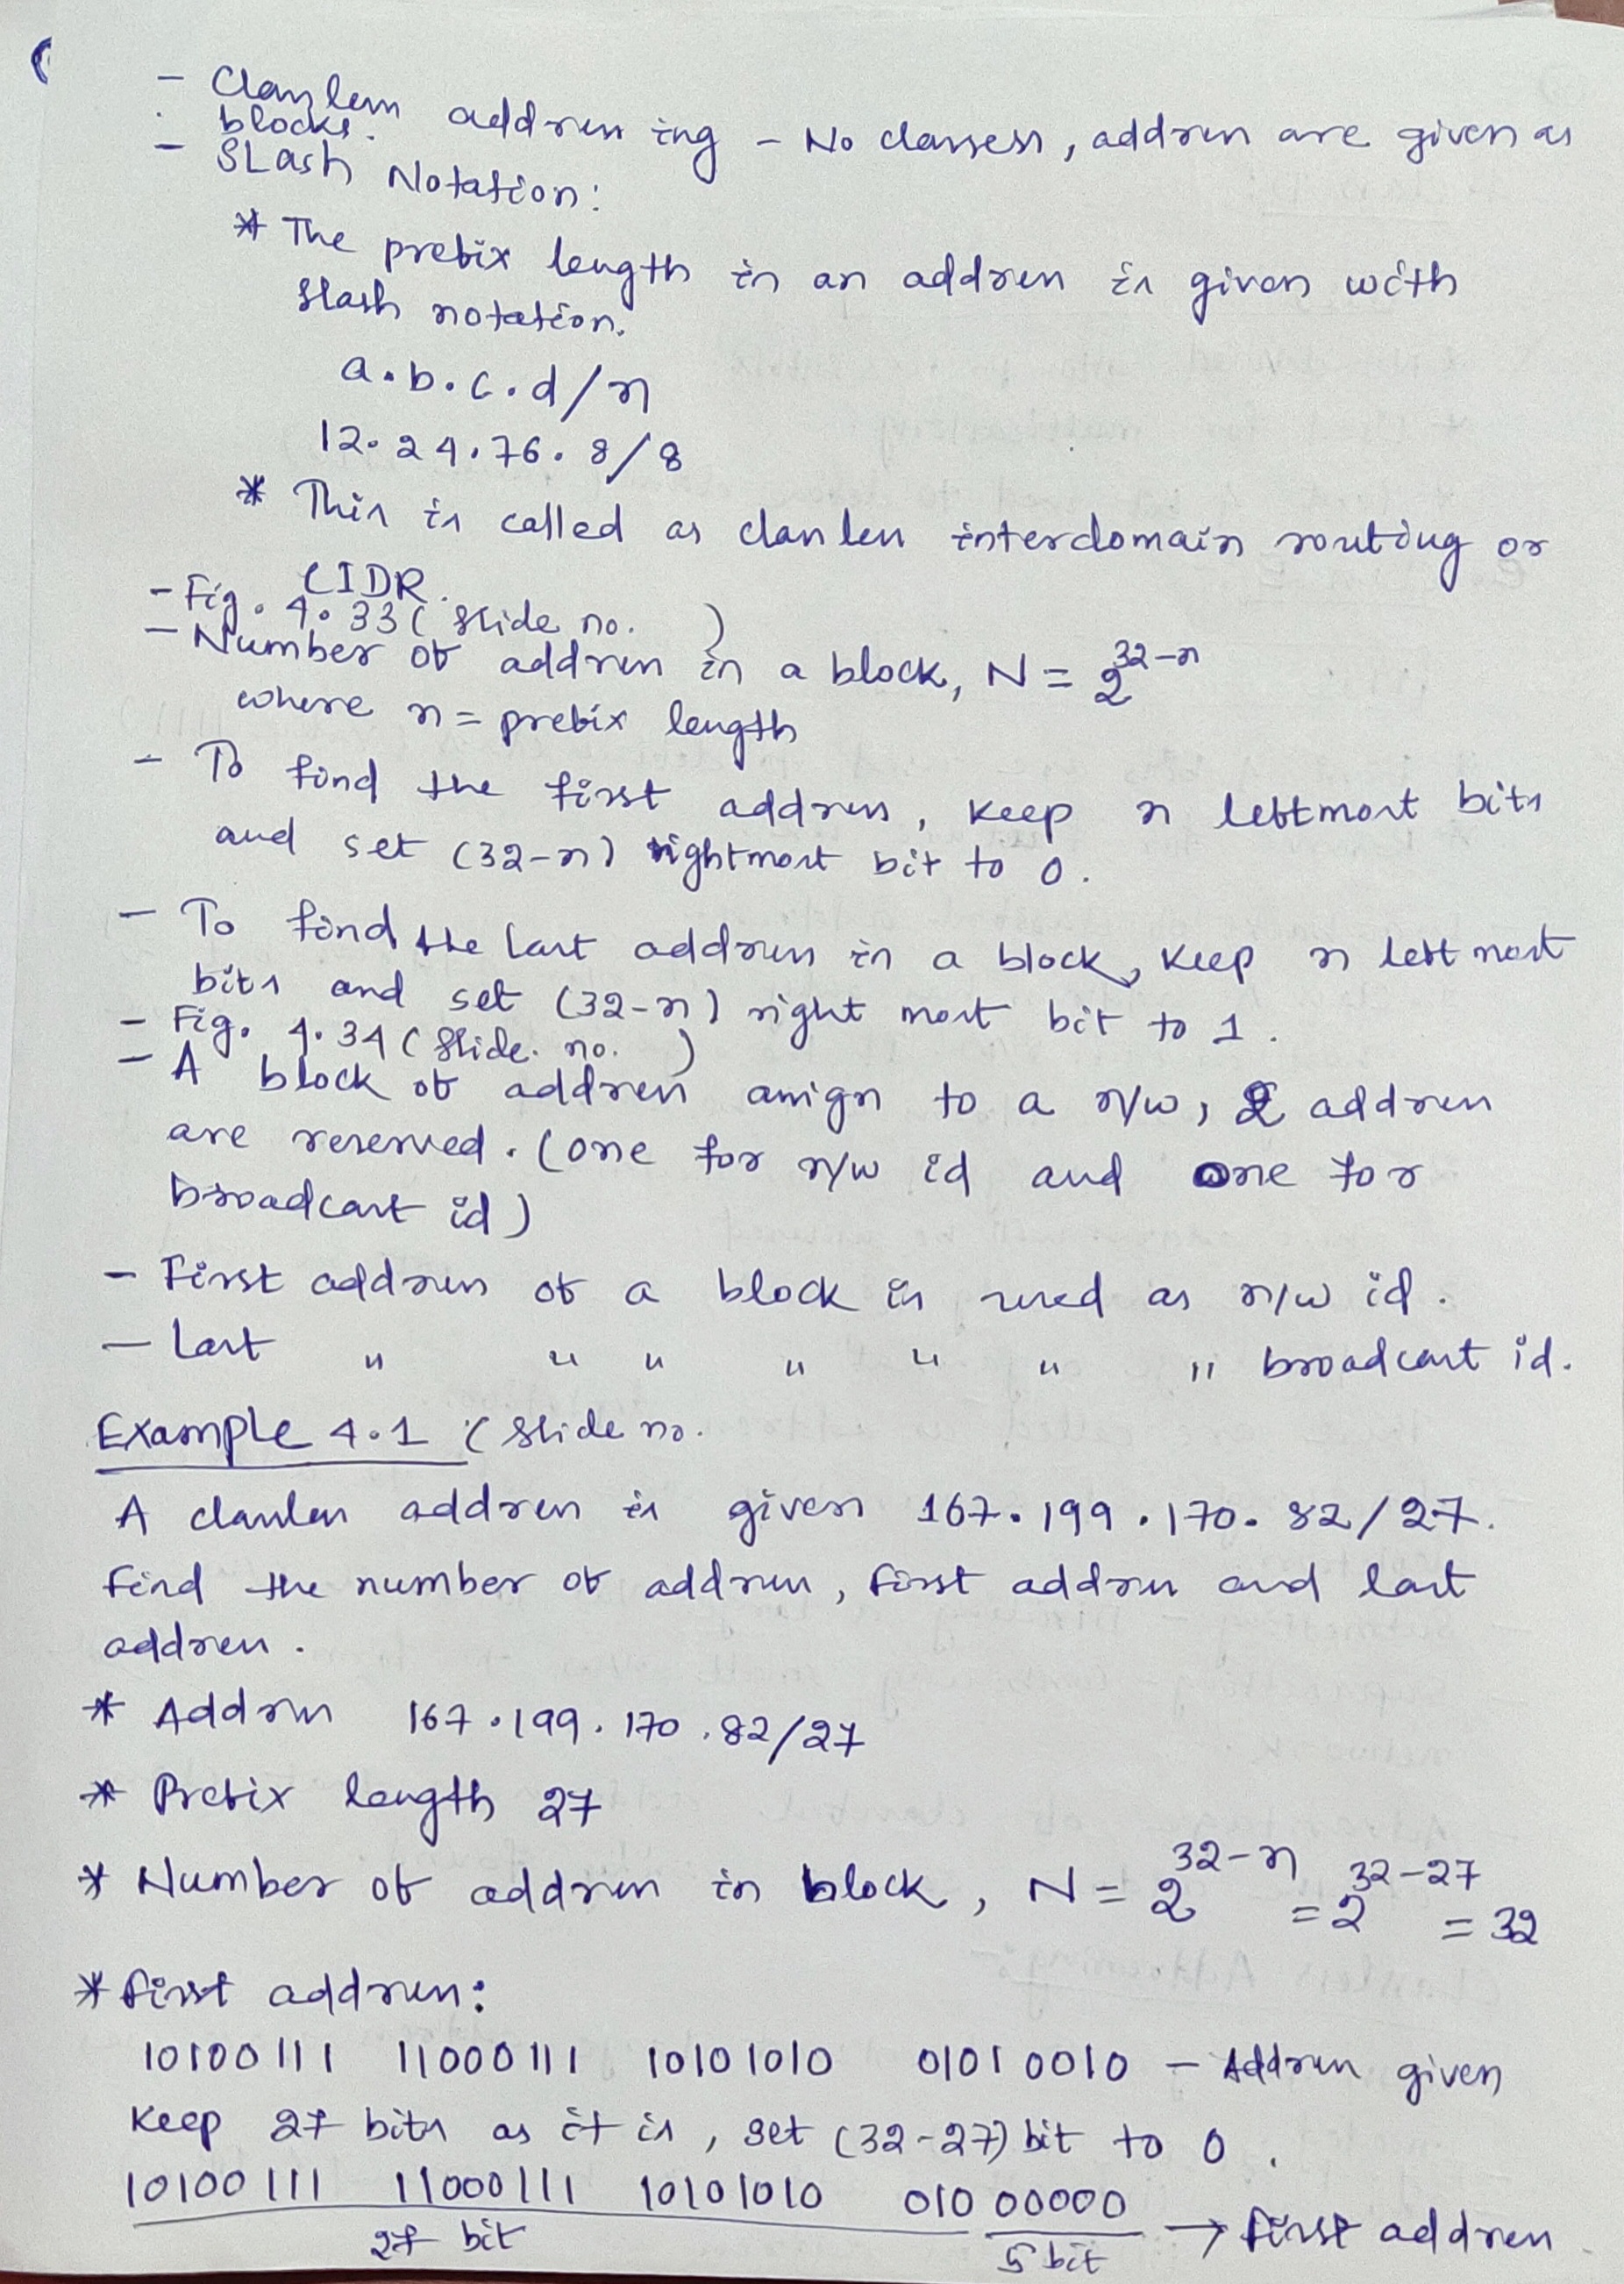 - Classless addressing - No classess, address are given as
blocks.
- SLash Notation:
* The prefix length in an address is given with
slash notation.
a.b.c.d/n
12.24.76.8/8
* This is called as classless interdomain routing or
CIDR.
- Fig. 4.33 ( Slide no. )
- Number of address in a block, N = 2^32-n
where n = prefix length
- To find the first address, keep n leftmost bits
and set (32-n) rightmost bit to 0.
- To find the last address in a block, keep n left most
bits and set (32-n) right most bit to 1.
- Fig. 4.34 ( Slide. no. )
- A block of address assign to a n/w, 2 address
are reserved. (one for n/w id and one for
broadcast id)
- First address of a block is used as n/w id.
- Last " " " " " " " broadcast id.
Example 4.1 ( Slide no.
A classless address is given 167.199.170.82/27.
Find the number of address, first address and last
address.
* Address 167.199.170.82/27
* Prefix length 27
* Number of address in block, N = 2^32-n = 2^32-27 = 32
* First address:
10100111 11000111 10101010 01010010 - Address given
Keep 27 bits as it is, set (32-27) bit to 0.
10100111 11000111 10101010 010 00000 → First address
27 bit 5 bit